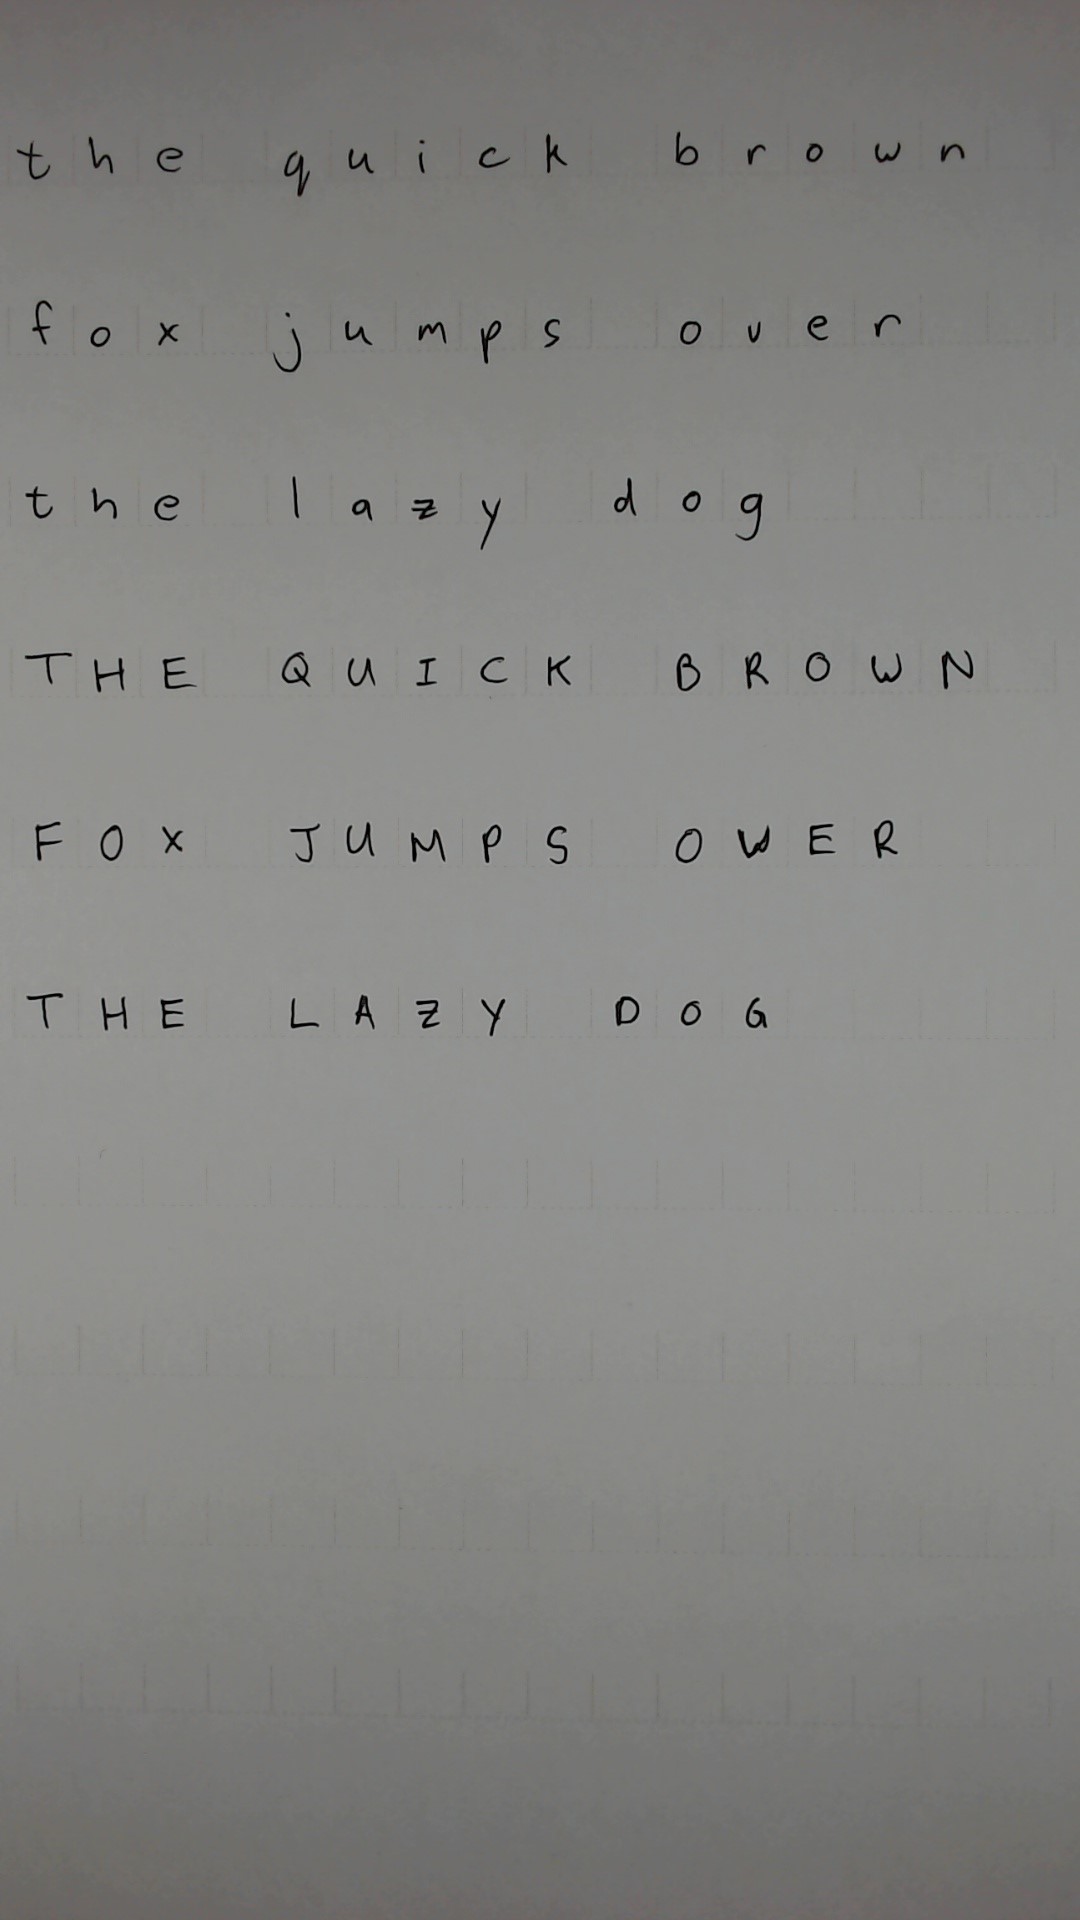 the quick brown
fox jumps over
the lazy dog
THE QUICK BROWN
FOX JUMPS OWER
THE LAZY DOG